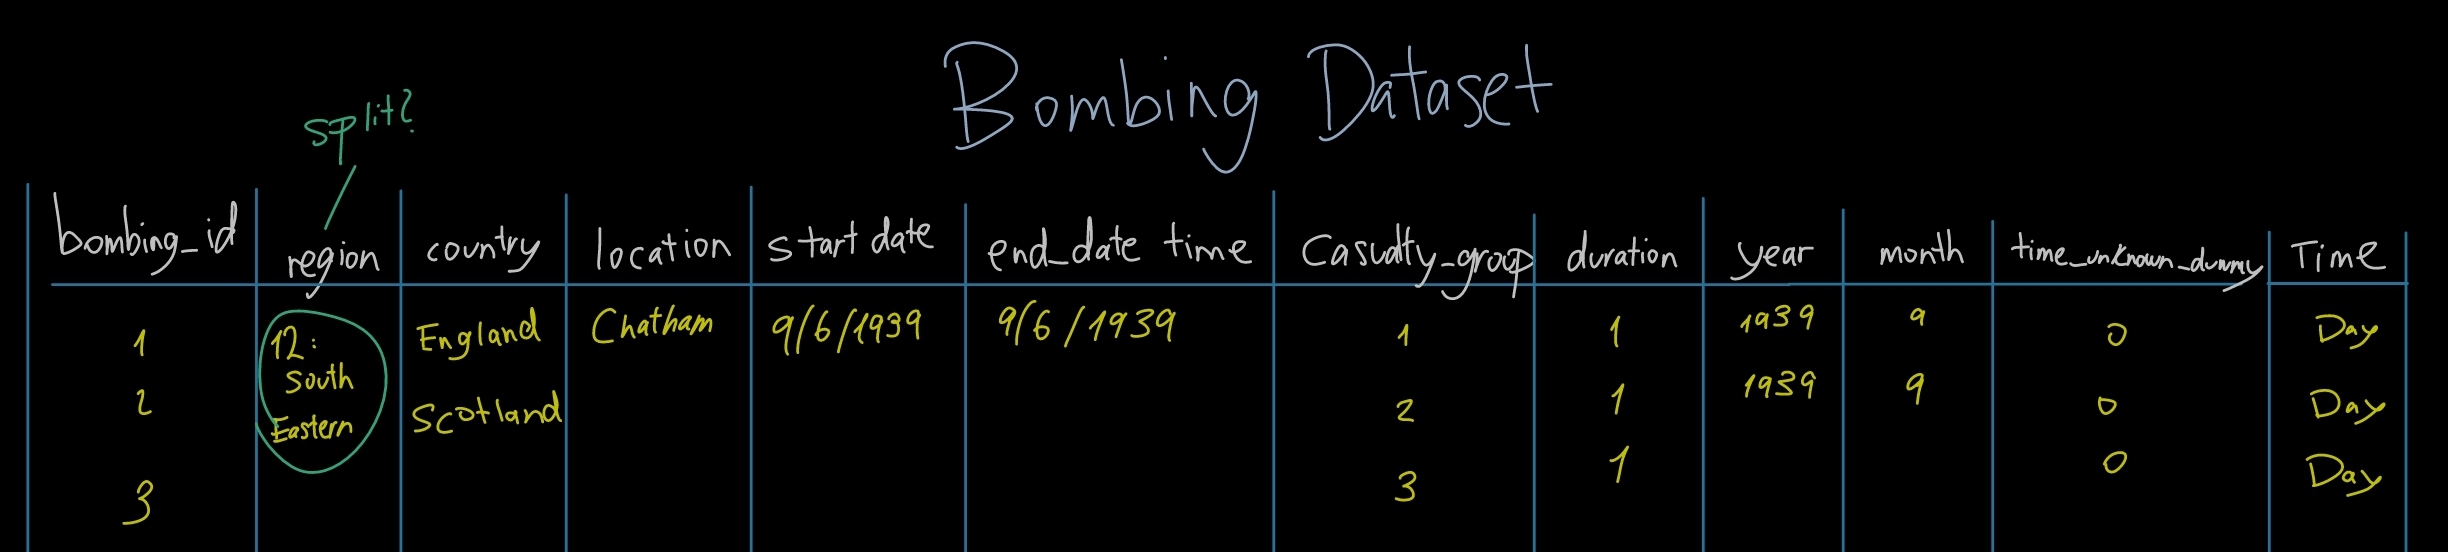 Bombing Dataset
split?
bombing_id region country location start date end_date time Casualty_group duration year month time_unknown_dummy Time
1 12: South Eastern England Chatham 9/6/1939 9/6/1939 1 1 1939 9 0 Day
2 Scotland 2 1 1939 9 0 Day
3 3 1 0 Day